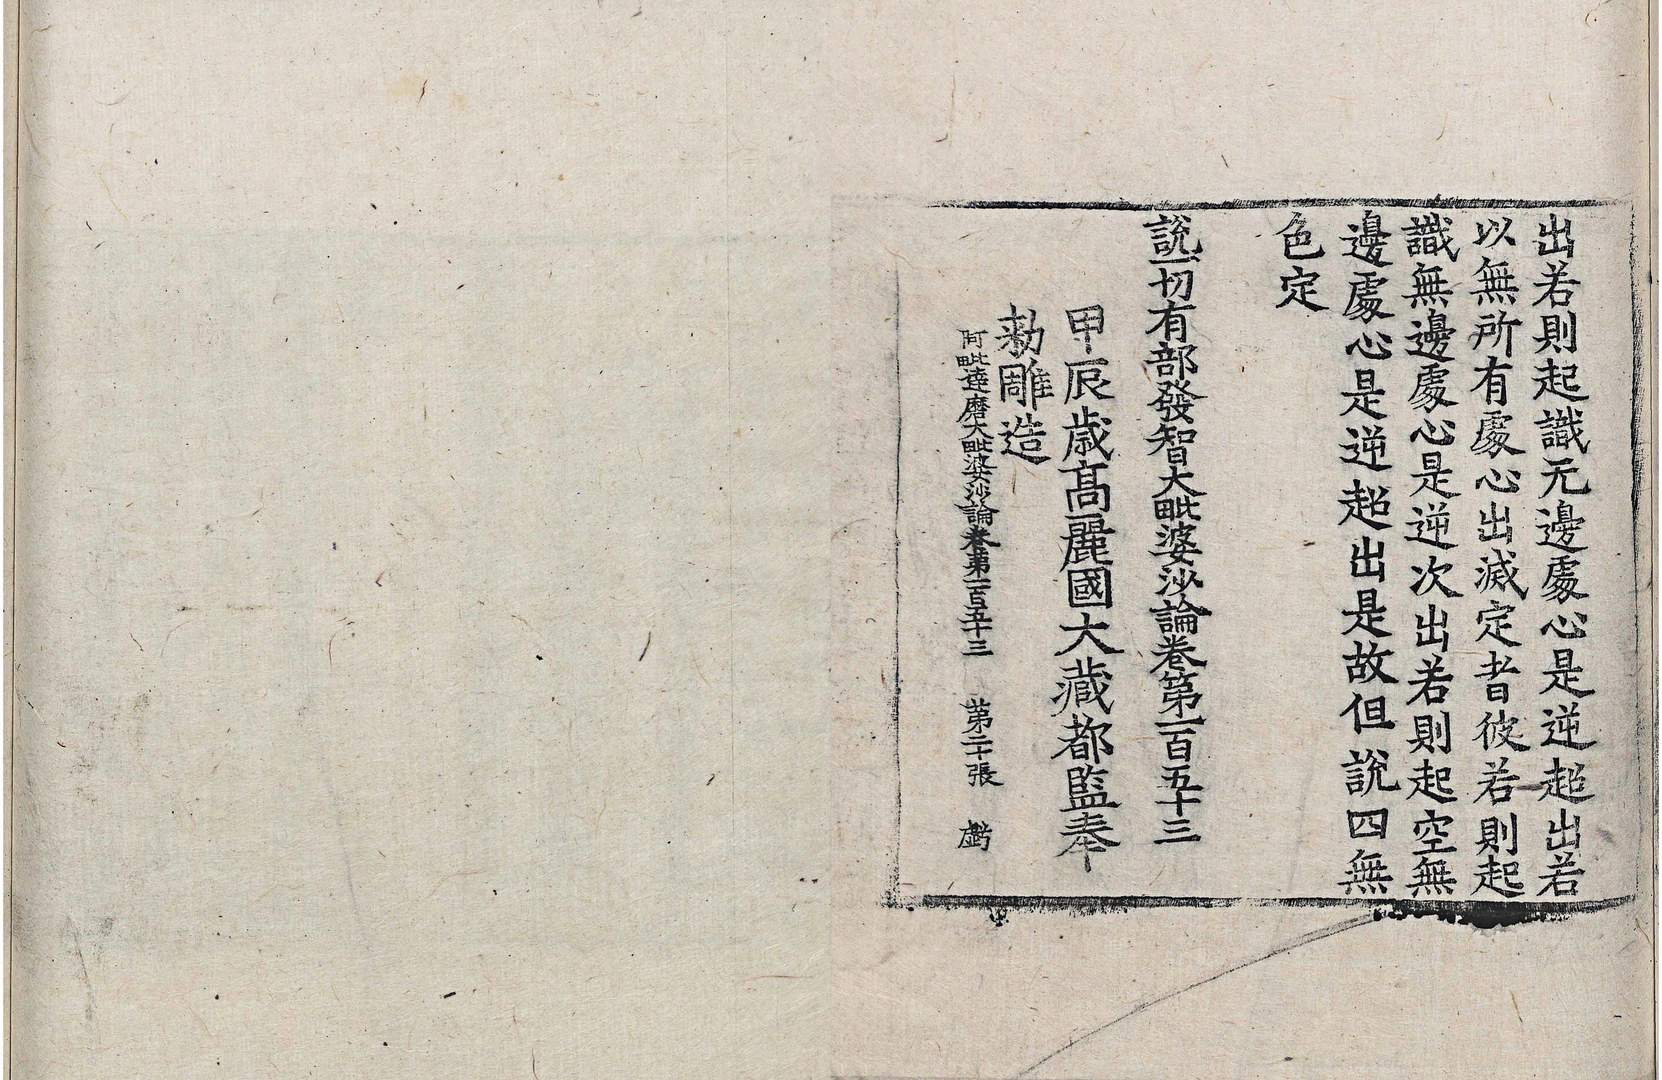 出若則起識无邊處心是逆超出若
以無所有處心出滅定者彼若則起
識無邊處心是逆次出若則起空無
邊處心是逆超出是故但說四無
色定
說一切有部發智大毗婆沙論卷第一百五十三
甲辰歲高麗國大藏都監奉
勅雕造
阿毗達磨大毗婆沙論卷第一百五十三 第二十張